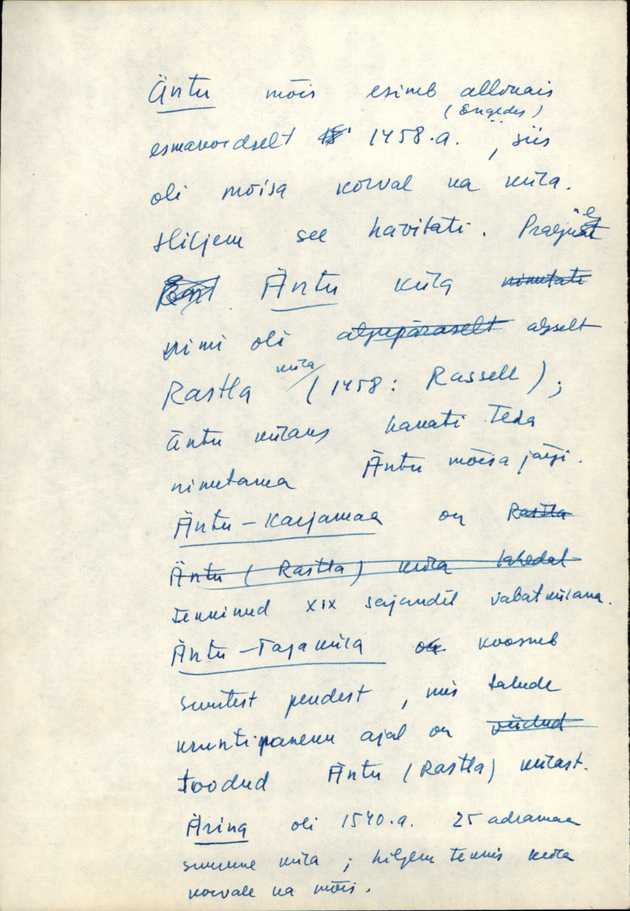 Äntu mõis esineb allikais
(Engedes)
esmakordselt 1458.a., siis
oli mõisa kõrval ka küla.
Hiljem see hävitati. Praeguse
Äntu küla nimetati
nimi oli algupäraselt algselt
Rastla küla (1458: Rassell);
Äntu külaks hakati teda
nimetama Äntu mõisa järgi.
Äntu-Karjamaa on Rastla
Äntu (Rastla) küla lahedal
tekkinud XIX sajandil vabatkülana.
Äntu-Tagaküla on koosneb
suurtest peredest, mis talude
kruntipaneku ajal on viidud
toodud Äntu (Rastla) külast.
Ärina oli 1540.a. 25 adramaa
suurune küla; hiljem tekkis küla
kõrvale ka mõis.